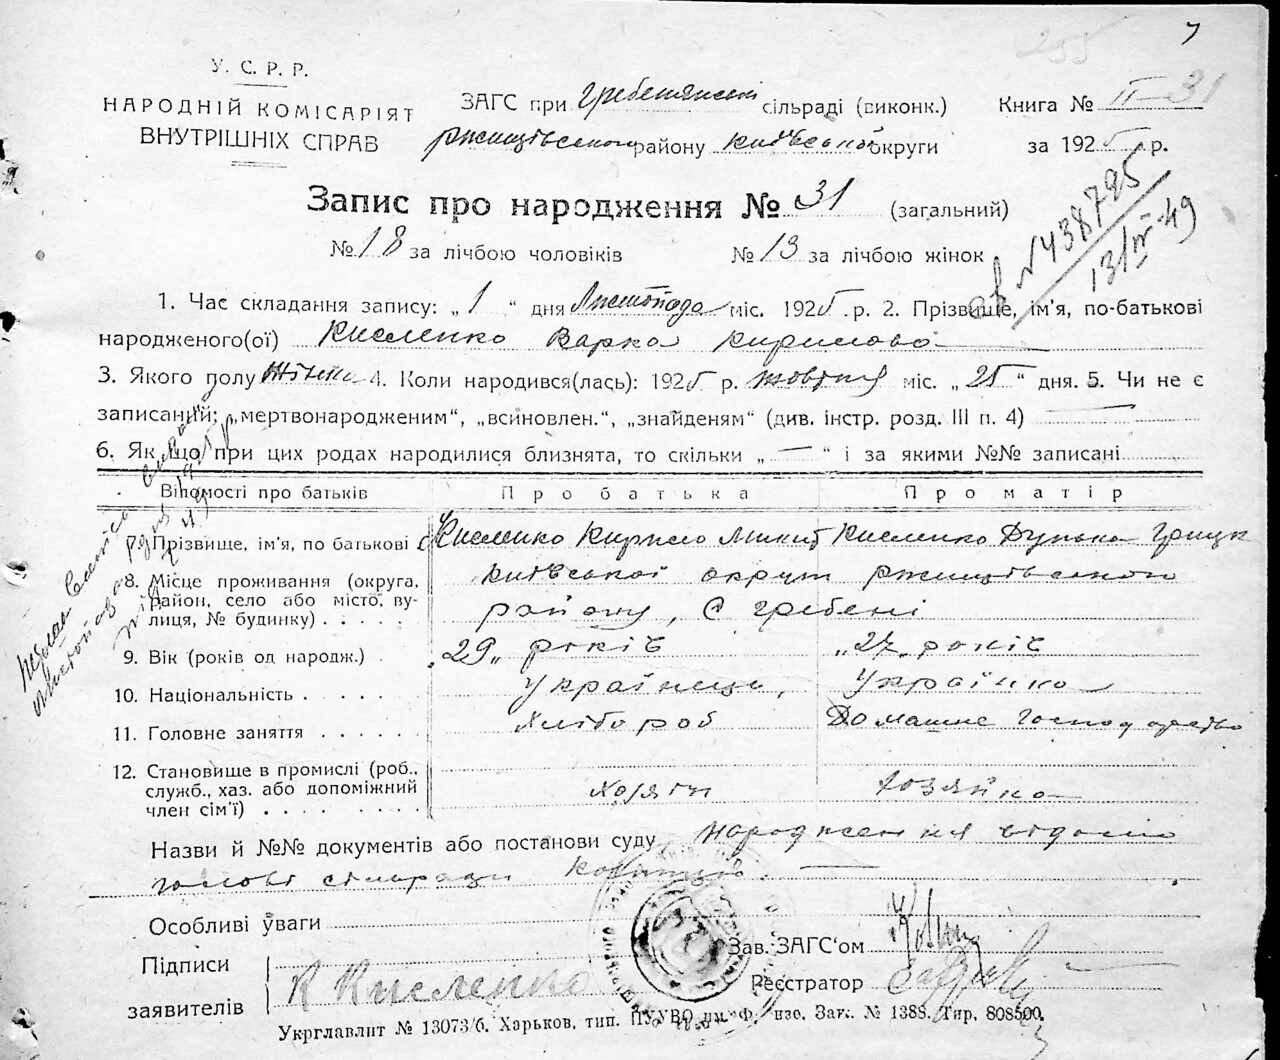 7
255
У. С. Р. Р.
НАРОДНІЙ КОМІСАРІЯТ
ВНУТРІШНІХ СПРАВ
ЗАГС при Гребенянськ сільраді (виконк.)
Книга № II-31
Ржищівського району Київської округи
за 1925 р.
Запис про народження № 31 (загальний)
№ 18 за лічбою чоловіків № 13 за лічбою жінок
№ 438795
13/IV-49
1. Час складання запису: „1“ дня Листопада міс. 1925 р. 2. Прізвище, ім'я, по-батькові
народженого(ої) Кисленко Варка Кирилова
3. Якого полу Жінка 4. Коли народився(лась): 1925 р. жовтня міс. „25“ дня. 5. Чи не є
записаний: „мертвонародженим“, „всиновлен.“, „знайденям“ (див. інстр. розд. III п. 4)
6. Як що при цих родах народилися близнята, то скільки „ — “ і за якими №№ записані
Відомості про батьків
Про батька
Про матір
7. Прізвище, ім'я, по батькові
Кисленко Кирило Микит
Кисленко Дунька Грицк
8. Місце проживання (округа, район, село або місто, вулиця, № будинку)
Київської округи Ржищівського
району, С Гребені
9. Вік (років од народж.)
„29„ років
„27„ років
10. Національність
Українець,
Українка
11. Головне заняття
Хлібороб
Домашнє господарство
12. Становище в промислі (роб., служб., хаз. або допоміжний член сім'ї)
Хозяїн
Хозяйка
Назви й №№ документів або постанови суду народження відомо
голові сільради
Особливі уваги
Зав. ЗАГС'ом
Підписи
заявителів
К Кисленко
Реєстратор
Укрглавлит № 13073/б. Харьков, тип. ПУУВО им. Фрунзе. Зак. № 1388. Тир. 808500.